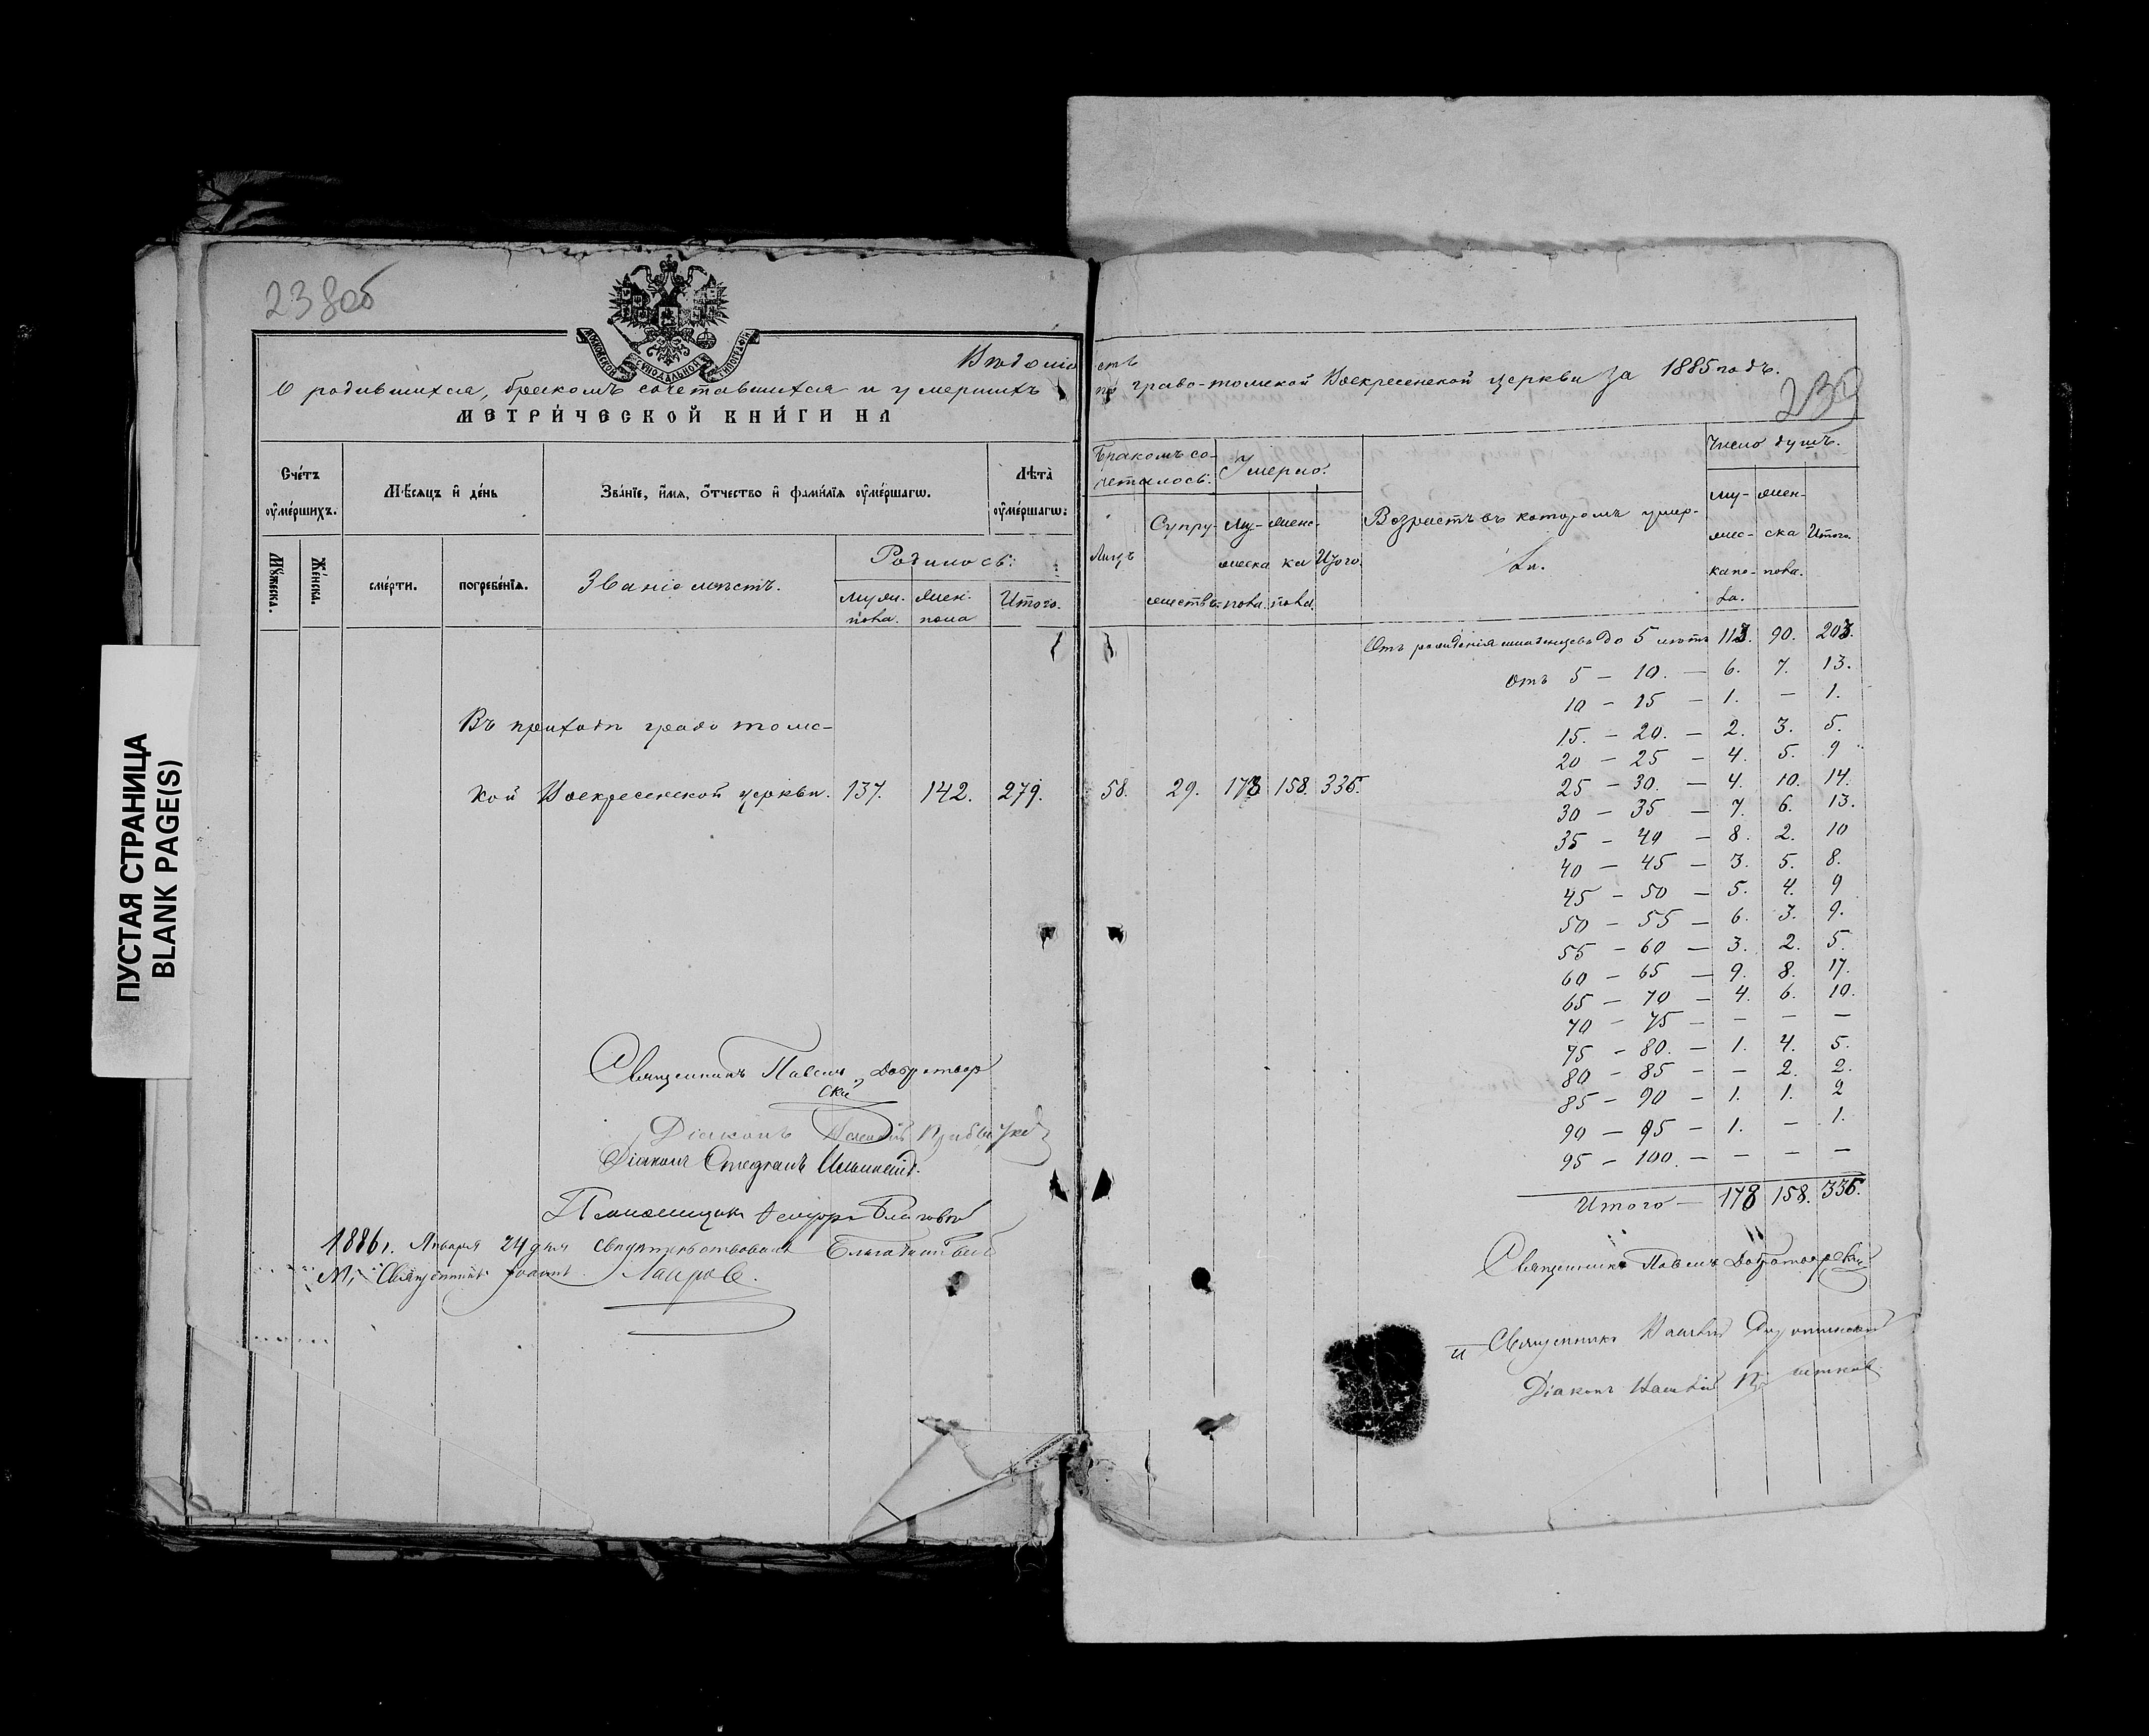 238об
МОСКОВСКОЙ СѴНОДАЛЬНОЙ ТИПОГРАФІИ
Вѣдомость
О родившихся, бракомъ сочетавшихся и умершихъ по градо-томской Воскресенской церкви за 1885 годъ.
239
МЕТРИ́ЧЕСКОЙ КНИ́ГИ НА
Сче́тъ оуме́ршихъ.
Мѣ́сяцъ и де́нь
Зва́нїе, и́мя, о́тчество и фами́лїя оуме́ршагѡ.
Лѣта̀ оуме́ршагѡ:
Му́жеска.
Же́нска.
сме́рти.
погребе́нїя.
Званіе мѣстъ.
Родилось:
муж. пола.
жен. пола
Итого.
Бракомъ со-
четалось:
Умерло:
Лицъ
Супру-
жествъ.
му-
жеска
пола.
женс-
ка
пола.
Итого
Возрастъ въ которомъ умер-
ли.
Число душъ.
му-
жес-
каго по-
ла.
жен-
ска
пола.
Итого.
Въ приходѣ градо томс-
кой Воскресенской церкви. 137. 142. 279. 58. 29. 178 158. 336.
Отъ рожденія младенцевъ до 5 лѣтъ 113. 90. 203.
Отъ 5 – 10. – 6. 7. 13.
10 – 15 – 1. – 1.
15. – 20. – 2. 3. 5.
20 – 25 – 4. 5. 9
25 – 30. – 4. 10. 14.
30 – 35 – 7. 6. 13.
35 – 40 – 8. 2. 10
40 – 45 – 3. 5. 8.
45 – 50 – 5. 4. 9
50 – 55 – 6. 3. 9.
55 – 60 – 3. 2. 5.
60 – 65 – 9. 8. 17.
65 – 70 – 4. 6. 10.
70 – 75 – – – –
75 – 80. – 1. 4. 5.
80 – 85 – – 2. 2.
85 – 90 – 1. 1. 2
90 – 95 – 1. – 1.
95 – 100. – – – –
Итого – 178 158. 336.
Священникъ Павелъ Добротвор
скій
Діаконъ
Діаконъ Стефанъ Ильинскій.
1886 г. Января 24 дня свидѣтельствовалъ Благочинный
№ 1, Священникъ Іоаннъ Лавровъ.
Священникъ Павелъ Добротворскій
и Священникъ
Діаконъ
ПУСТАЯ СТРАНИЦА
BLANK PAGE(S)